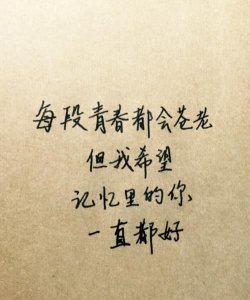 每段青春都会苍老
但我希望
记忆里的你、
一直都好